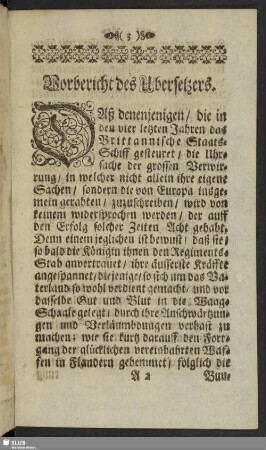 ( 3 )
Vorbericht des Ubersetzers.
Daß denenjenigen / die in
den vier letzten Jahren das
Brittannische Staats-
Schiff gesteuret / die Uhr-
sache der grossen Verwir-
rung / in welcher nicht allein ihre eigene
Sachen / sondern die von Europa insge-
mein gerahten / zuzuschreiben / wird von
keinem widersprochen werden / der auff
den Erfolg solcher Zeiten Acht gehabt.
Denn einem jeglichen ist bewust / daß sie /
so bald die Königin ihnen den Regiments-
Stab anvertrauet / ihr äusserste Kräffte
angespannet / diejenige / so sich um das Va-
terland so wohl verdient gemacht / und vor
dasselbe Gut und Blut in die Waag-
Schaale gelegt / durch ihre Anschwärtzun-
gen und Verläumbdungen verhast zu
machen; wie sie kurtz darauff den Fort-
gang der glücklichen vereinbahrten Waf-
fen in Flandern gehemmet / folglich die
A 2 Bun-
SLUB